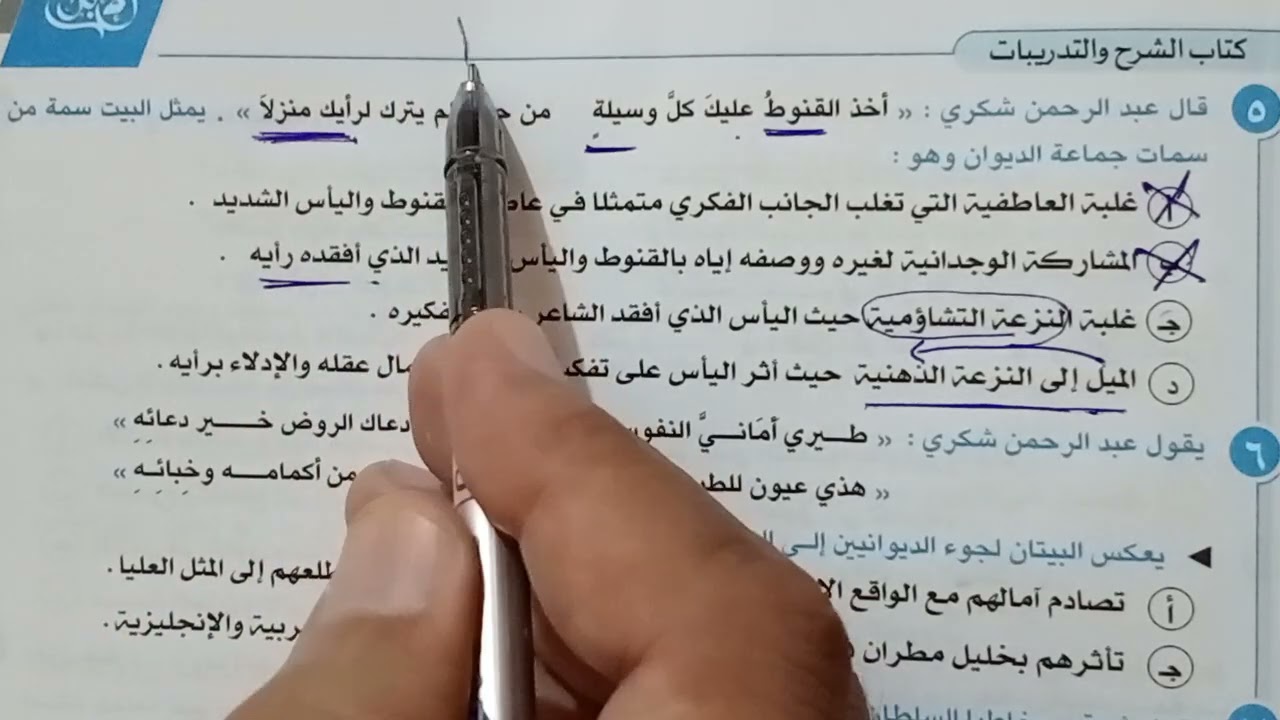 كتاب الشرح والتدريبات
٥ قال عبد الرحمن شكري : « أخذ القنوطُ عليكَ كلَّ وسيلة من يترك لرأيك منزلاَ » . يمثل البيت سمة من
سمات جماعة الديوان وهو :
أ غلبة العاطفية التي تغلب الجانب الفكري متمثلا في القنوط واليأس الشديد .
المشاركة الوجدانية لغيره ووصفه إياه بالقنوط واليأس الذي أفقده رأيه .
جـ غلبة النزعة التشاؤمية حيث اليأس الذي أفقد الشاعر .
د الميل إلى النزعة الذهنية حيث أثر اليأس على عقله والإدلاء برأيه .
٦ يقول عبد الرحمن شكري : « طـيري أمَانـيَّ دعاك الروض خـير دعائهِ »
« هذي عيون من أكمامـه وخبائـهِ »
يعكس البيتان لجوء الديوانيين إلى
أ تصادم آمالهم مع الواقع إلى المثل العليا .
جـ تأثرهم بخليل مطران والإنجليزية .